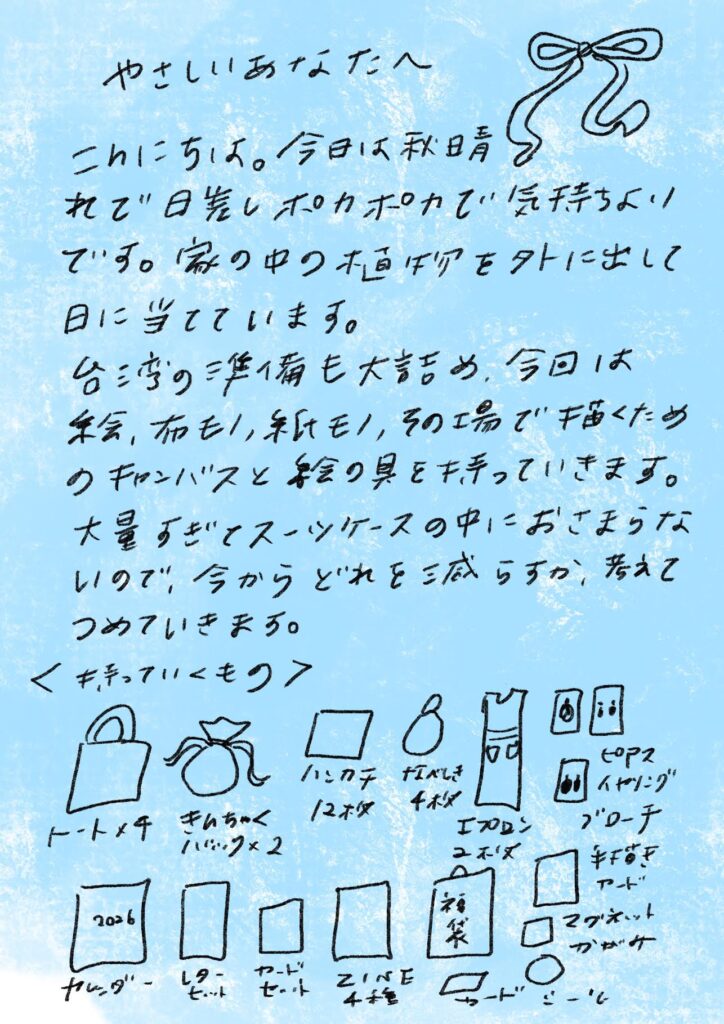 やさしいあなたへ
こんにちは。今日は秋晴
れで日差しポカポカで気持ちよい
です。家の中の植物を外に出して
日に当てています。
台湾の準備も大詰め、今回は
絵、布モノ、紙モノ、その場で描くため
のキャンバスと絵の具を持っていきます。
大量すぎてスーツケースの中におさまらな
いので、今からどれを減らすか、考えて
つめていきます。
<持っていくもの>
トート×4
きんちゃく
バッグ×2
ハンカチ
12枚
なべしき
4枚
エプロン
2枚
ピアス
イヤリング
ブローチ
2026
カレンダー
レター
セット
カード
セット
ZINE
4種
福
袋
カード
手描き
カード
マグネット
かがみ
シール